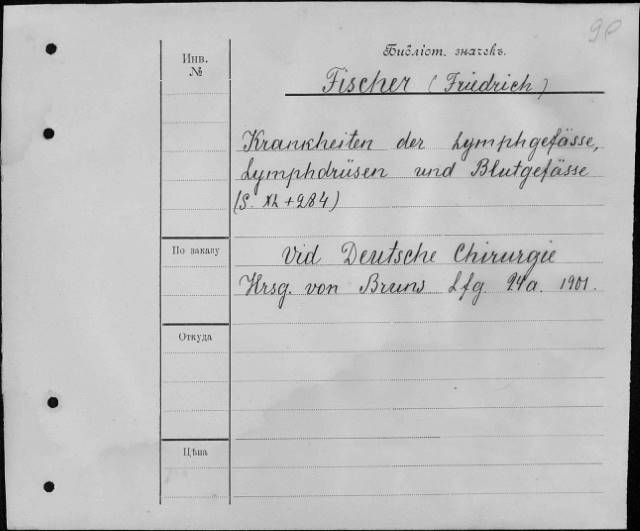 90
Библіот. значекъ.
Инв.
№
Fischer (Friedrich)
Krankheiten der Lymphgefässe,
Lymphdrüsen und Blutgefässe
(S. XL + 284)
По заказу
Vid Deutsche Chirurgie
Hrsg. von Bruns Lfg 24a. 1901.
Откуда
Цѣна